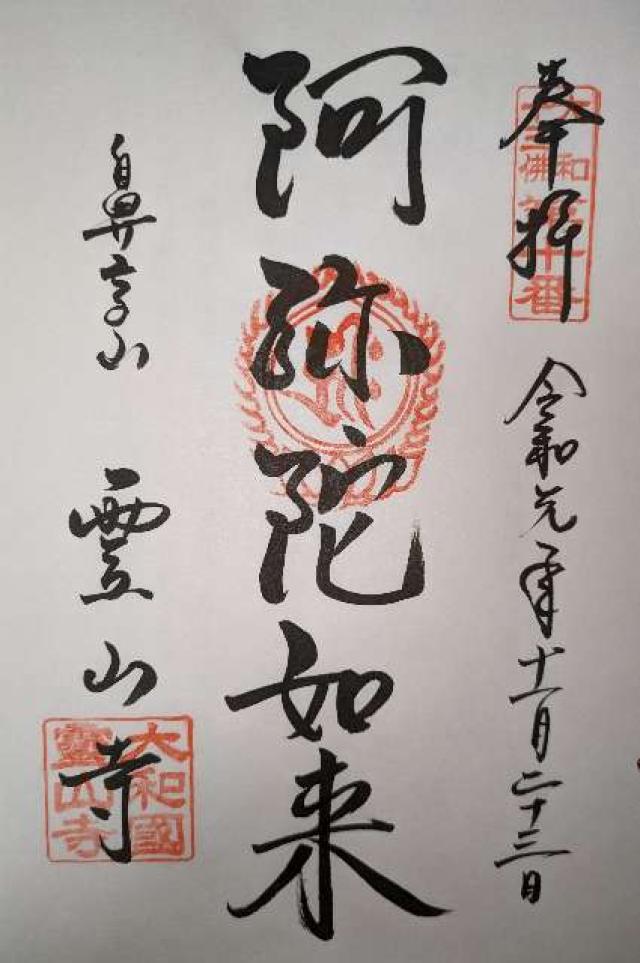 奉拝
大和
十三佛
第十番
令和元年十一月二十三日
阿弥陀如来
鼻高山
霊山寺
大和國
靈山寺